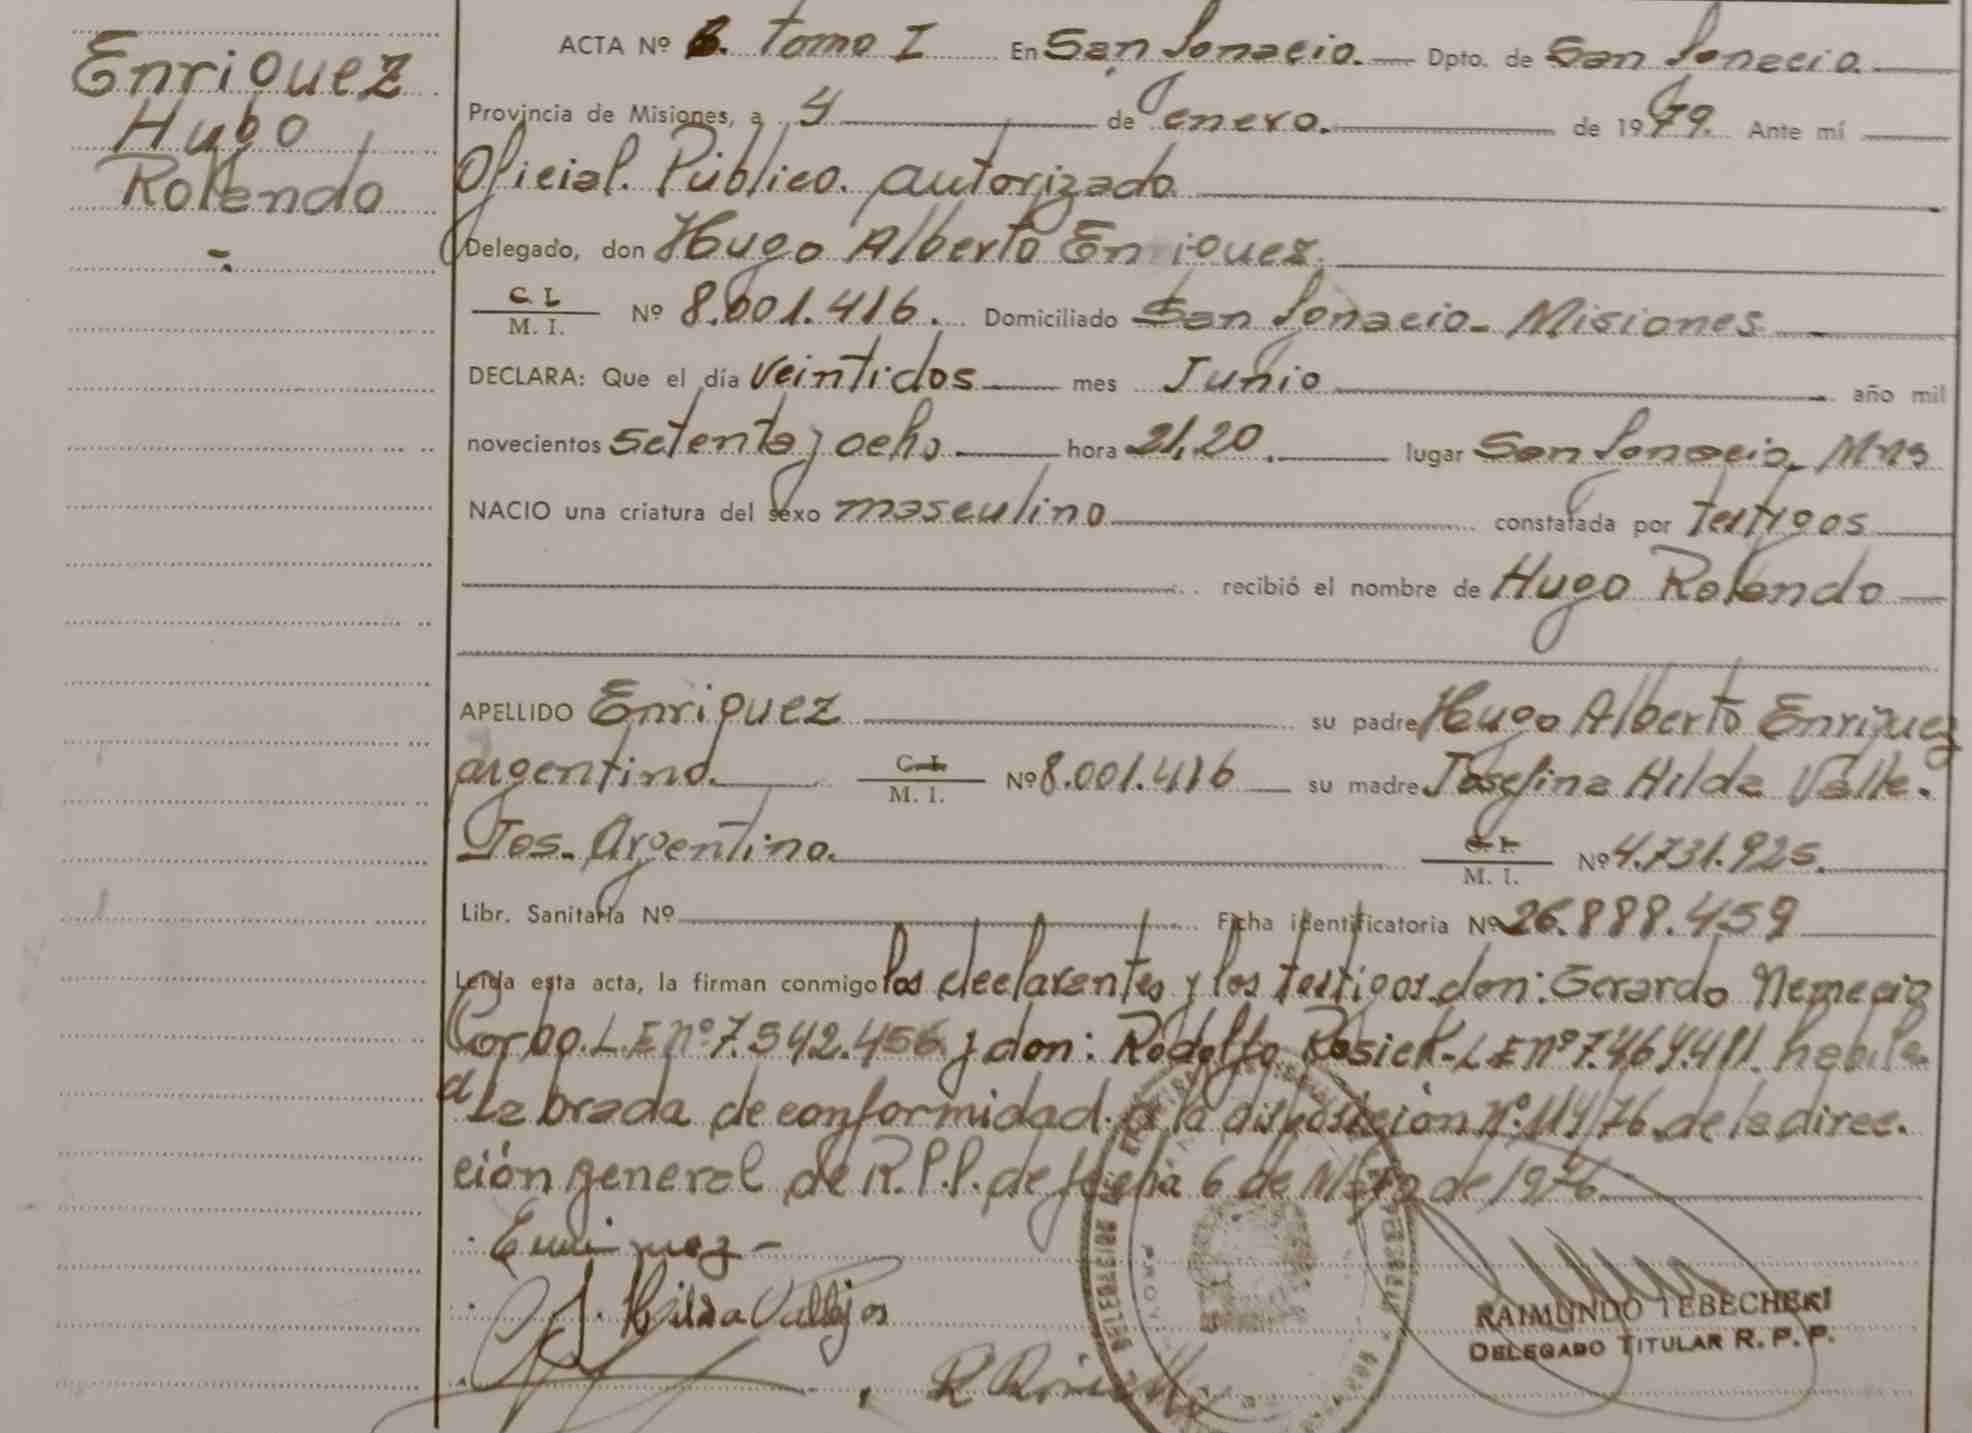 Enriquez
Hugo
Rolando
-.
ACTA Nº 6. Tomo I En San Ignacio. Dpto. de San Ignacio.
Provincia de Misiones, a 4 de enero. de 1979. Ante mí
Oficial. Público. autorizado
Delegado, don Hugo Alberto Enriquez.
C. I.
M. I. Nº 8.001.416. Domiciliado San Ignacio- Misiones
DECLARA: Que el día veintidos mes Junio año mil
novecientos setenta y ocho hora 21,20. lugar San Ignacio. Mns
NACIO una criatura del sexo masculino constatada por testigos
recibió el nombre de Hugo Rolando
APELLIDO Enriquez su padre Hugo Alberto Enriquez
argentino. C. I. M. I. Nº 8.001.416 su madre Josefina Hilda Valle.
Jos- Argentino. C. I. M. I. Nº 4.731.925.
Libr. Sanitaria Nº Ficha identificatoria Nº 26.888.459
Leída esta acta, la firman conmigo los declarantes y los testigos. don: Gerardo Nemecio
Corbo. L.E nº 7.542.456 y don: Rodolfo Rosiek- L.E nº 7.464.411.
labrada de conformidad. a la disposición Nº. 114/76. de la direc.
ción general de R.P.P. de fecha 6 de Mayo de 1976
Enriquez -
J. Hilda Vallejos
RAIMUNDO TEBECHERI
DELEGADO TITULAR R. P. P.